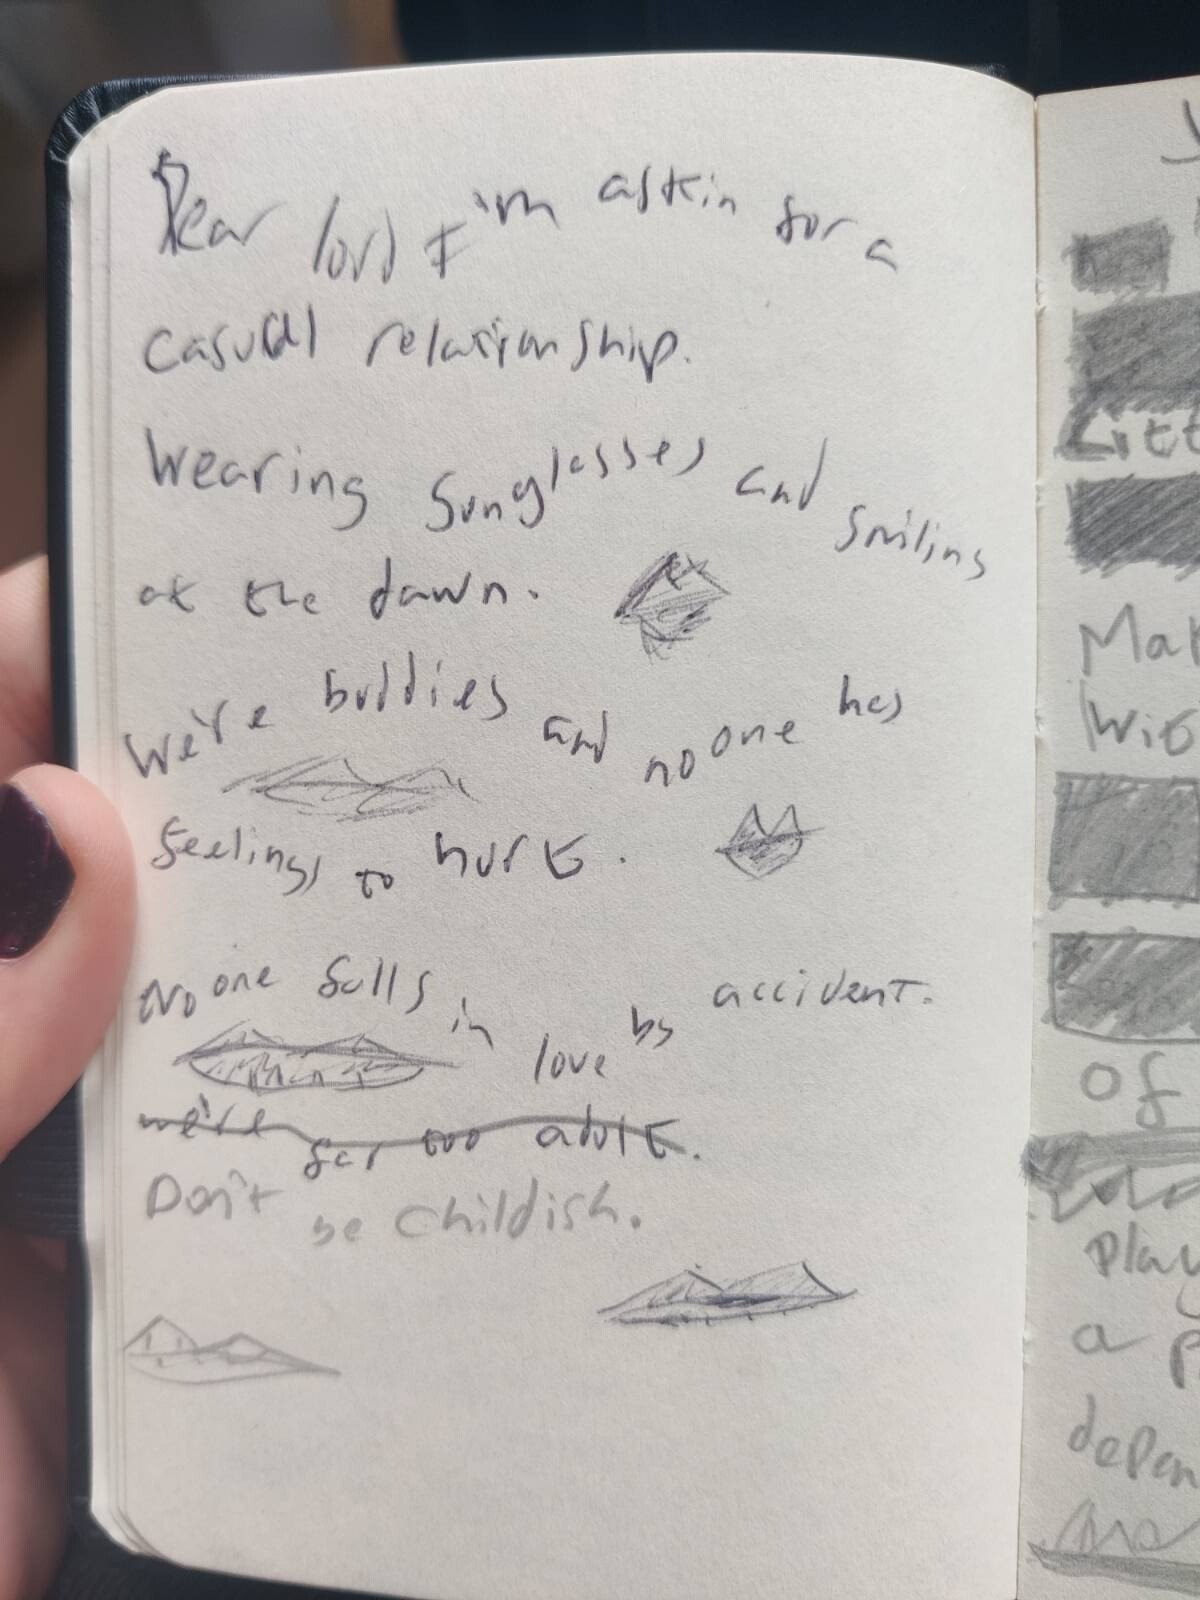 Dear lord I'm askin for a
casual relationship.
Wearing sunglasses and smiling
at the dawn.
We're buddies and no one has
feelings to hurt.
No one falls in love by accident.
we're far too adult.
Don't be childish.
of
a